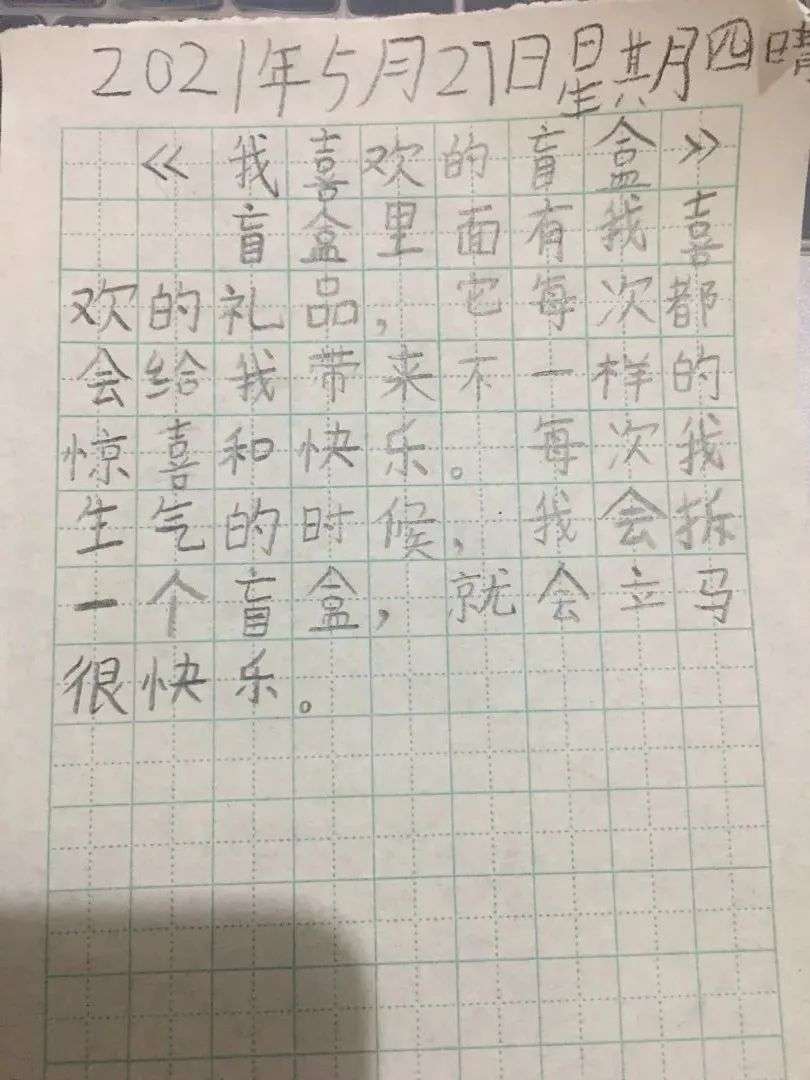 2021年5月27日星期四晴
《我喜欢的盲盒》
盲盒里面有我喜
欢的礼品，它每次都
会给我带来不一样的
惊喜和快乐。每次我
生气的时候，我会拆
一个盲盒，就会立马
很快乐。